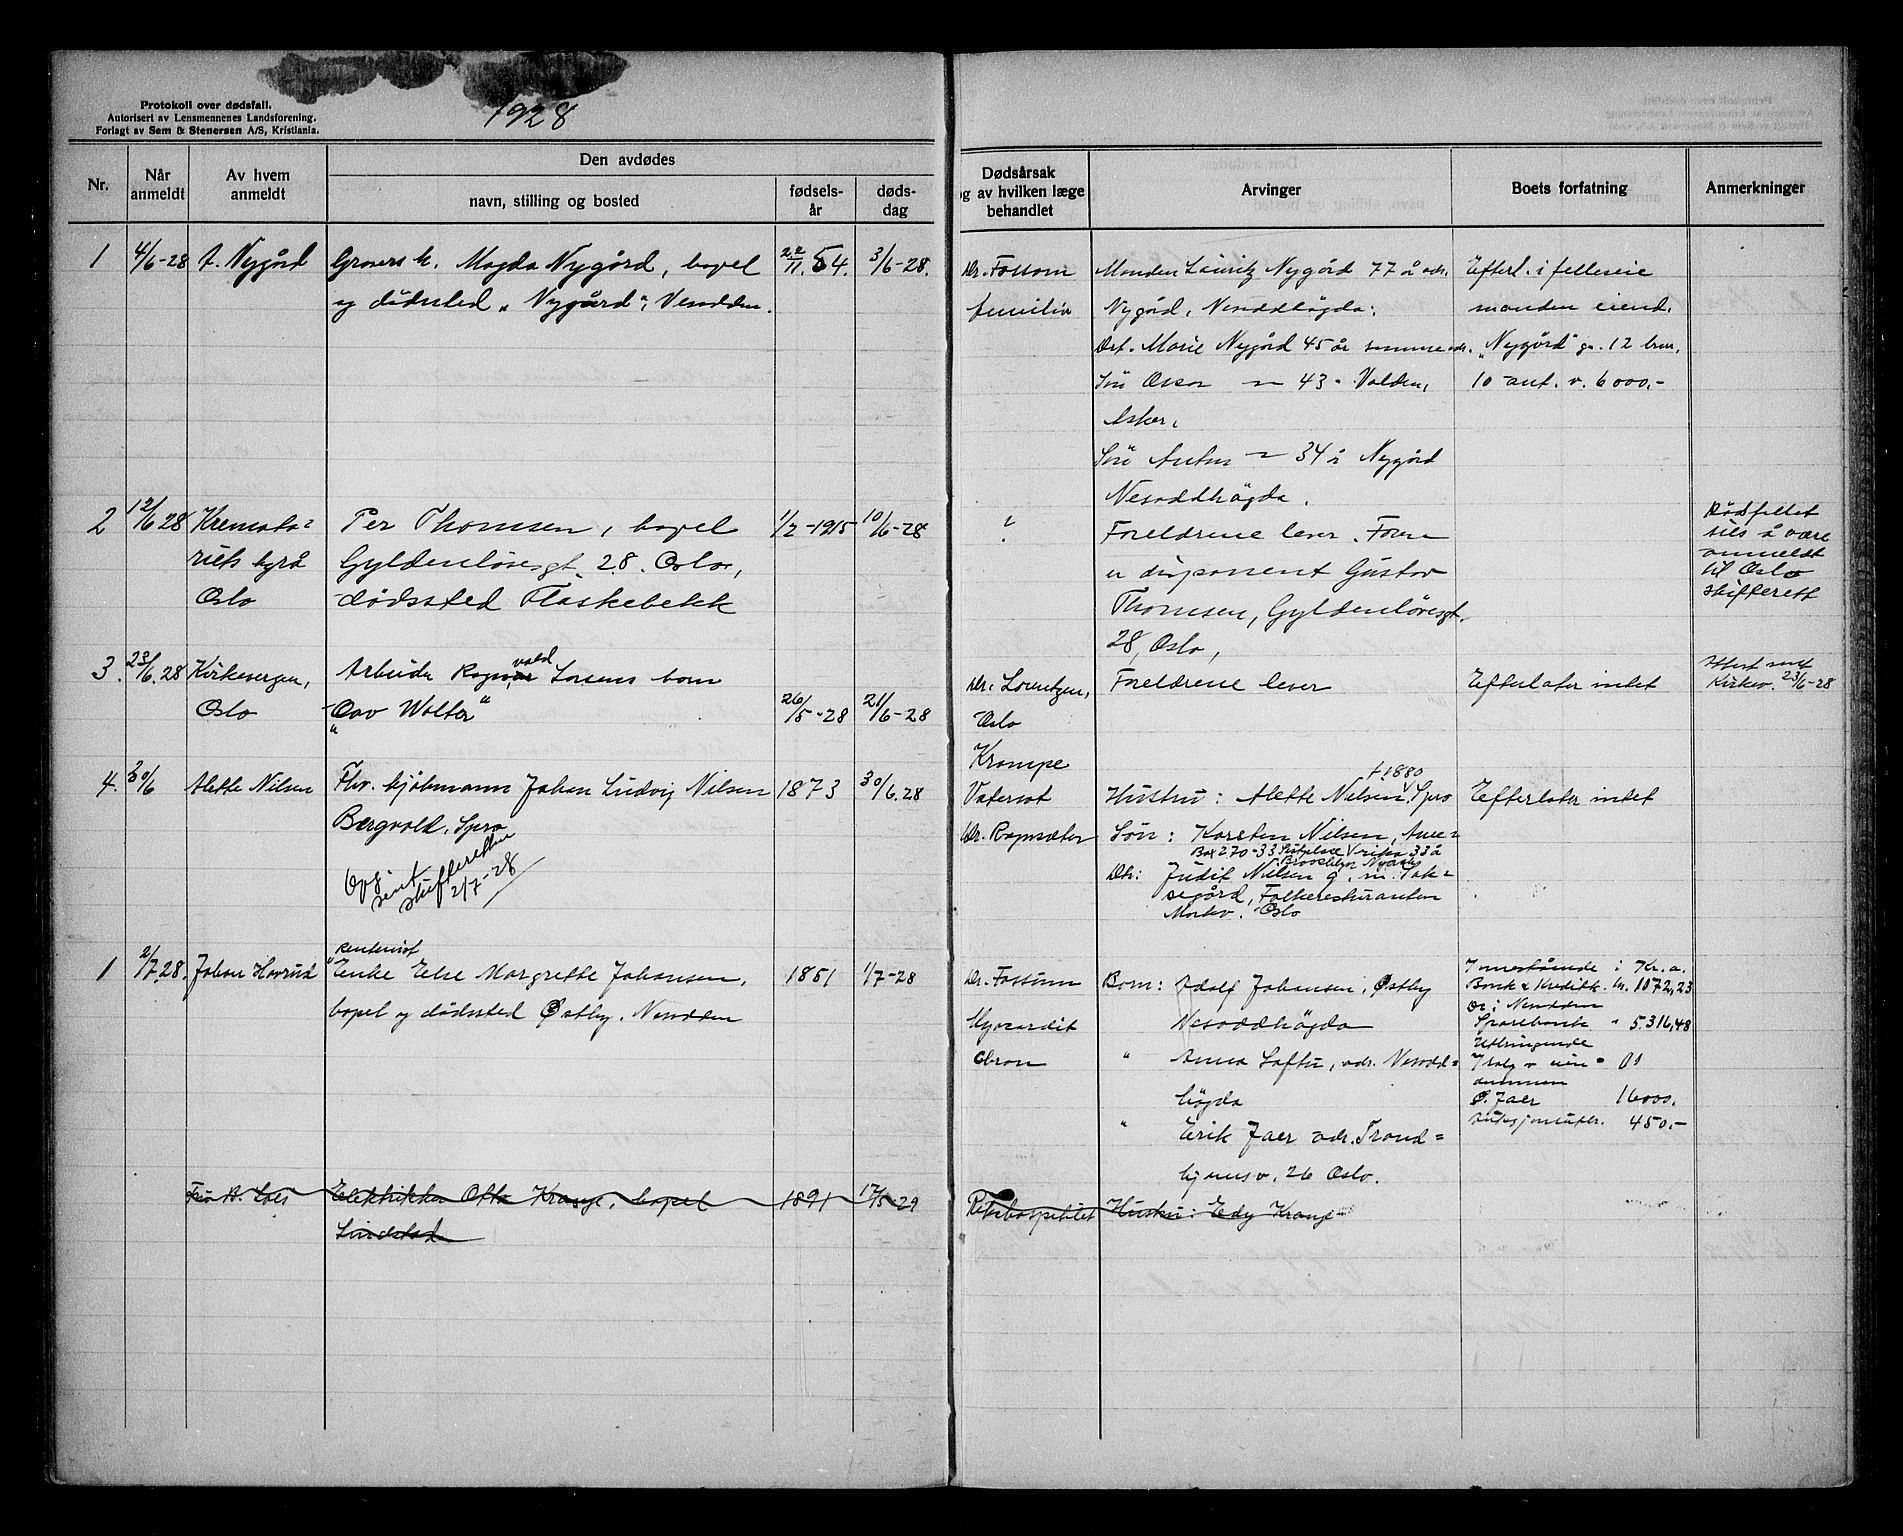 Protokoll over dødsfall.
Autorisert av Lensmennenes Landsforening.
Forlagt av Sem & Stenersen A/S, Kristiania.
1928
Nr.
Når anmeldt
Av hvem anmeldt
Den avdødes
navn, stilling og bosted
fødsels-år
døds-dag
Dødsårsak og av hvilken læge behandlet
Arvinger
Boets forfatning
Anmerkninger
1 4/6-28 A. Nygård
Magda Nygård, bopel 22/11.54. 3/6-28.
og dødssted "Nygård", Nesodden.
Dr. Fossum
Manden Lauritz Nygård 77 å adr.
Nygård, Nesoddhøgda.
Dat. Marie Nygård 45 år samme adr.
Søn Oscar — 43 " Valden,
Asker,
Søn Anton — 34 å Nygård
Nesoddhøgda.
Efterl. i felleseie
manden eiend.
"Nygård" g. 12 brn.
10 ant. v. 6000.-
2 12/6 28 Kremato=
riets byrå
Oslo
Per Thomsen, bopel 1/2-1915 10/6-28
Gyldenløvesgt. 28. Oslo,
dødssted Flaskebekk
?
Foreldrene lever. Faren
er disponent Gustav
Thomsen, Gyldenløvesgt.
28, Oslo,
Dødsfallet
sies å være
anmeldt
til Oslo
skifterett
3. 23/6.28 Kirkevergen,
Oslo
Arbeider Ragnvald Larsens barn
"Odv Walter" 26/5-28 21/6-28
Dr. Lorentzen,
Oslo
Krampe
Foreldrene lever
Efterlater intet
Attest sendt
Kirkev. 23/6-28
4. 30/6 Alette Nilsen
Fhv. kjøbmann Johan Ludvig Nilsen 1873 30/6.28
Bergvold, Spro
Opg.
sent
skifteretten
2/7-28
Vatersot
Dr. Ragnsæter
f. 1880
Hustru: Alette Nilsen, Spro
Søn: Karsten Nilsen, Ame=
rika 33 å
Box 270-33
Brooklyn
Dtr: Judit Nilsen g. m.
Oslo
Efterlater intet
1 2/7.28. Johan Havrud
Rentenist
Enke Else Margrethe Johansen, 1851 1/7-28
bopel og dødssted Østby. Nesodden
Dr. Fossum
Myocardit
cron
Barn: Adolf Johansen, Østby
Nesoddhøgda
" Anna Softu, adr. Nesodd=
høgda
" Erik Jaer adr. Trond=
hjemsv. 26 Oslo.
Innestående i Kr.a.
Bank & Kreditk. kr. 1072,23
Do i Nesodden
Sparebank " 5.316,48
O. Jaer 16000.
450.-
Elektriker Otto Krange, bopel 1891 12/5-29
Lindstad
Rikshospitalet Hustru: Edy Krange